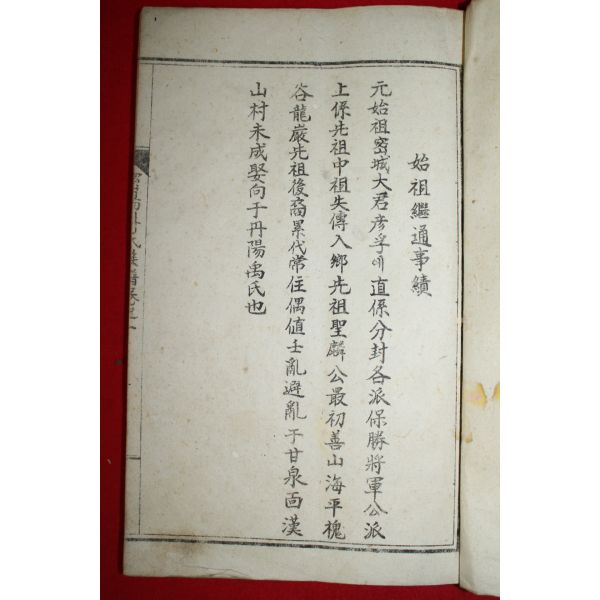 始祖繼通事績
元始祖密城大君彦孚 直係分封各派保勝將軍公派
上係先祖中祖失傳入鄕先祖聖麟公最初善山海平槐
谷龍巖先祖後裔累代常住偶値壬亂避亂于甘泉面漢
山村未成娶向于丹陽禹氏也
氏族譜卷之一